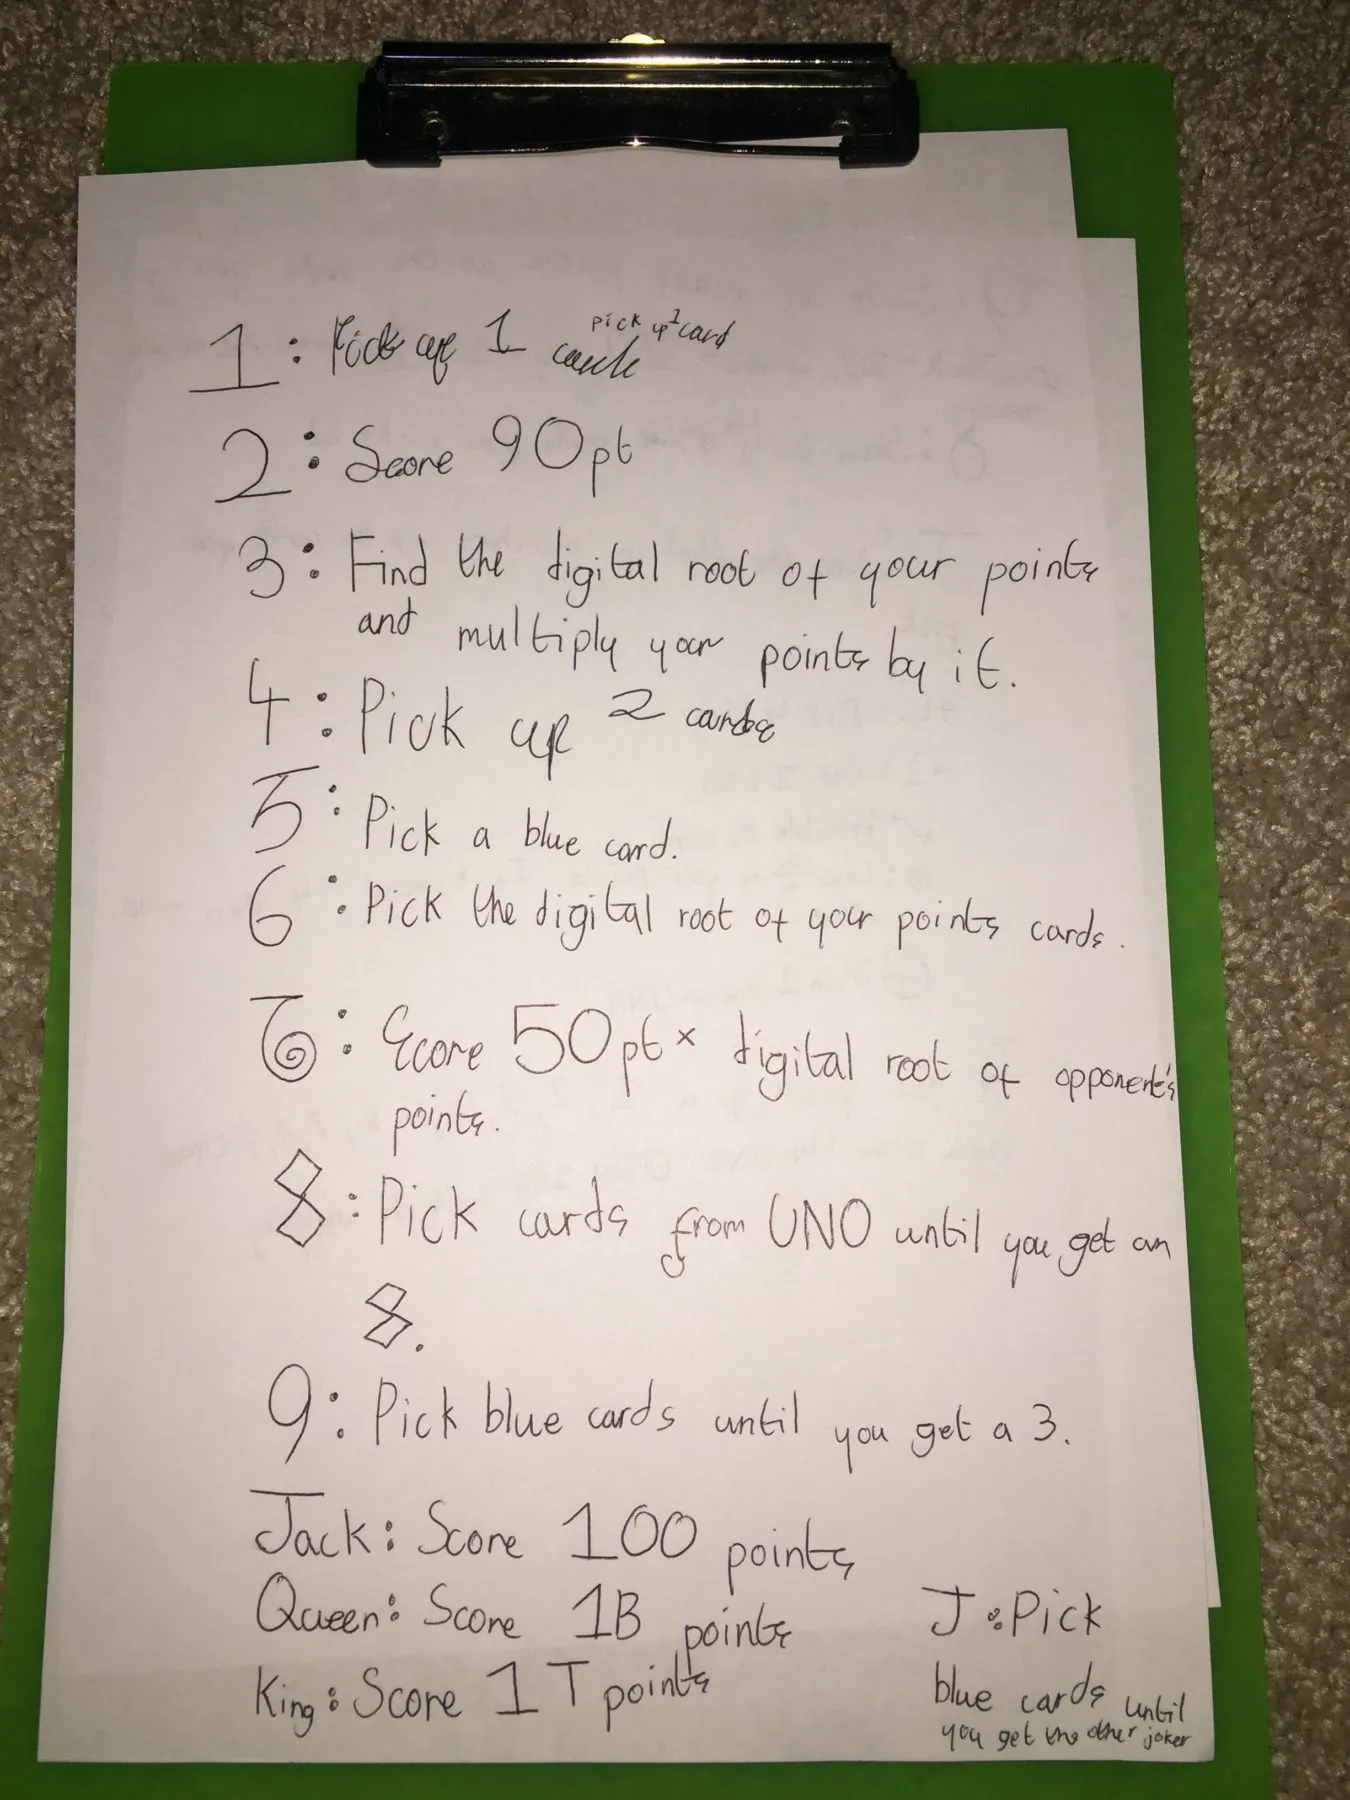 1: Pick up 1 card pick up 1 card
2: Score 90pt
3: Find the digital root of your points
and multiply your points by it.
4: Pick up 2 cards
5: Pick a blue card.
6: Pick the digital root of your points cards.
7: Score 50pt × digital root of opponent's
points.
8: Pick cards from UNO until you get an
8.
9: Pick blue cards until you get a 3.
Jack: Score 100 points
Queen: Score 1B points
King: Score 1T points
J: Pick
blue cards until
you get the other joker